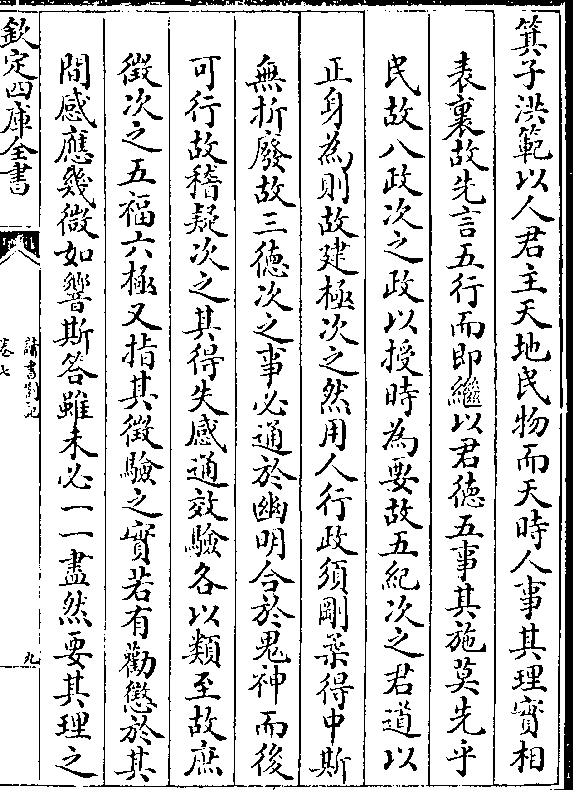 箕子洪範以人君主天地民物而天時人事其理實相
表裏故先言五行而即繼以君徳五事其施莫先乎
民故八政次之政以授時為要故五紀次之君道以
正身為則故建極次之然用人行政須剛柔得中斯
無折廢故三徳次之事必通於幽明合於鬼神而後
可行故稽疑次之其得失感通效驗各以類至故庶
徵次之五福六極又指其徵驗之實若有勸懲於其
間感應幾微如響斯答雖未必一一盡然要其理之
欽定四庫全書
讀書劄記
卷七
九